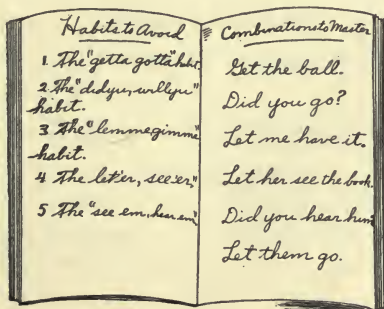 Habits to Avoid
1. The "getta gotta" habit.
2. The "didyu, willyu"
habit.
3 The "lemmegimme"
habit.
4 The let'er, see'er,"
5 The "see em, hear em"
Combinations to Master
Get the ball.
Did you go?
Let me have it.
Let her see the book.
Did you hear him?
Let them go.